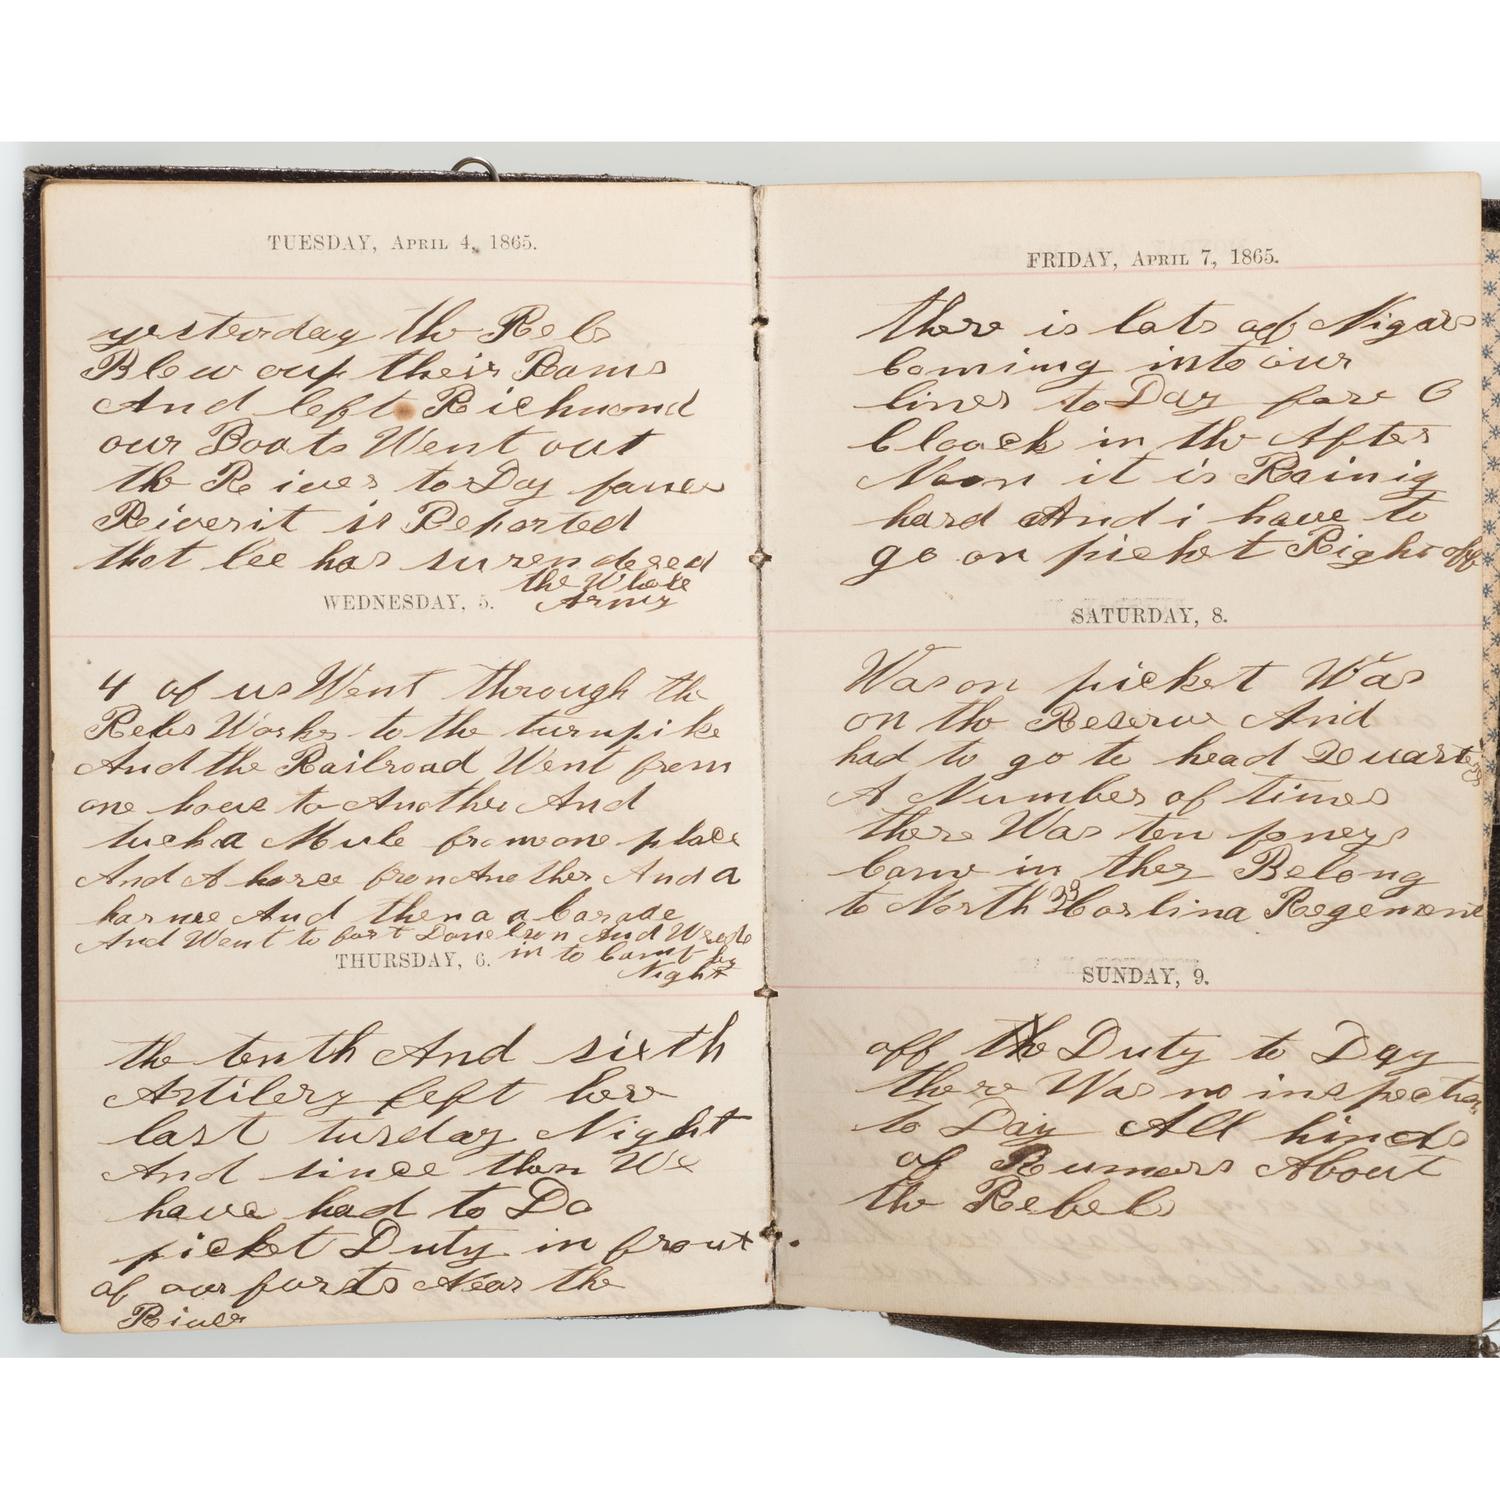 TUESDAY, APRIL 4, 1865.
yesterday the Rebs
Blew oup their Rams
And left Richmond
our Boats Went out
the River to Day
Riverit is Reported
that lee has surendered
the Whole
Army
WEDNESDAY, 5.
4 of us Went through the
Rebs Works to the turnpike
And the Railroad Went from
one house to Another And
tuck a Mule from one place
And A horse from Another And a
harnee And then a a carade
And Went to fort Donelson And Wrode
in to Camt by
Night
THURSDAY, 6.
the tenth And sixth
Artilery left here
last tursday Night
And since then We
have had to Do
picket Duty in frount
of our forts Near the
River
FRIDAY, APRIL 7, 1865.
there is lots of Nigars
Coming into our
lines to Day fore O
Cloock in the After
Noon it is Rainig
hard And i have to
go on picket Right off
SATURDAY, 8.
Was on picket Was
on the Reserve And
had to go to head Quarters
A Number of times
there Was ten joneys
Came in they Belong
to North 33 Carlina Regement
SUNDAY, 9.
off the Duty to Day
there Was no inspection
to Day All kinds
of Rumors About
the Rebels